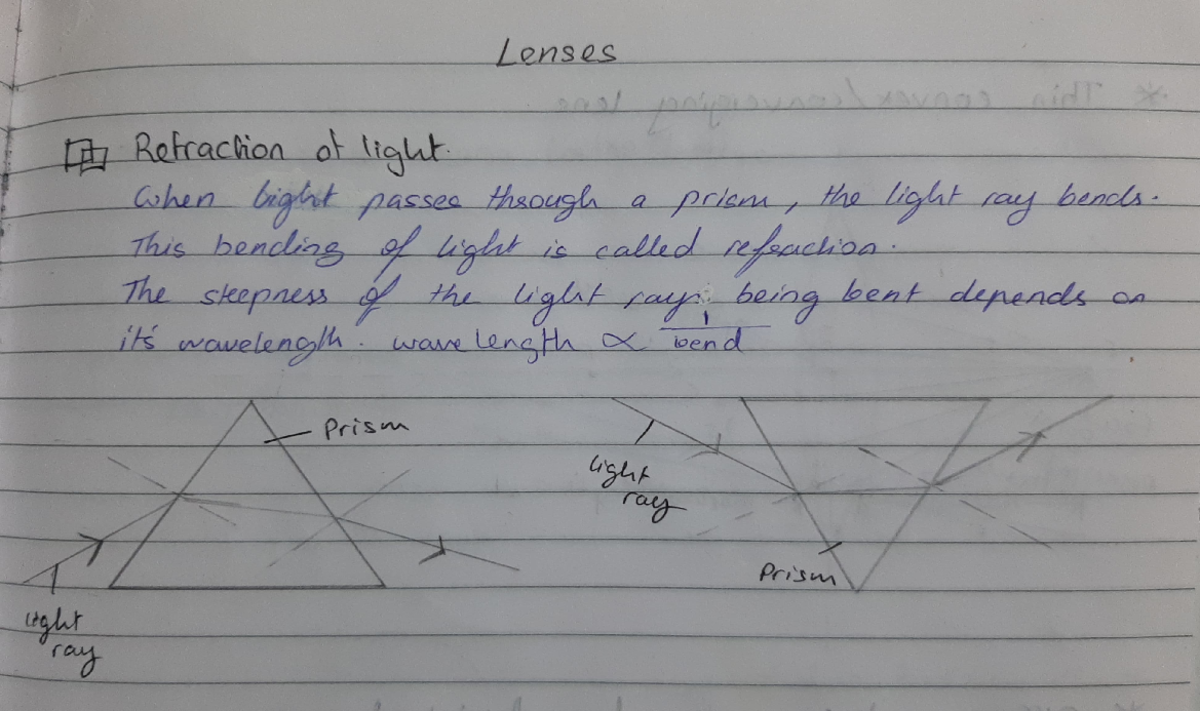 Lenses
Refraction of light.
When light passes through a prism, the light ray bends.
This bending of light is called refraction.
The steepness of the light ray being bent depends on
it's wavelength. wavelength ∝ 1/bend
Prism
light
ray
Prism
light
ray